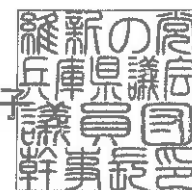 維新の党
兵庫県議会
議員団
幹事長印
子